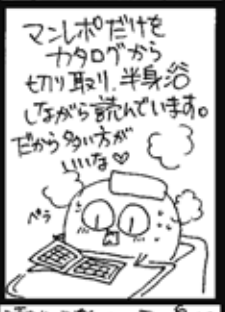 マンレポだけを
カタログから
切り取り、半身浴
しながら読んでいます。
だから多い方が
いいな♡
ペラ